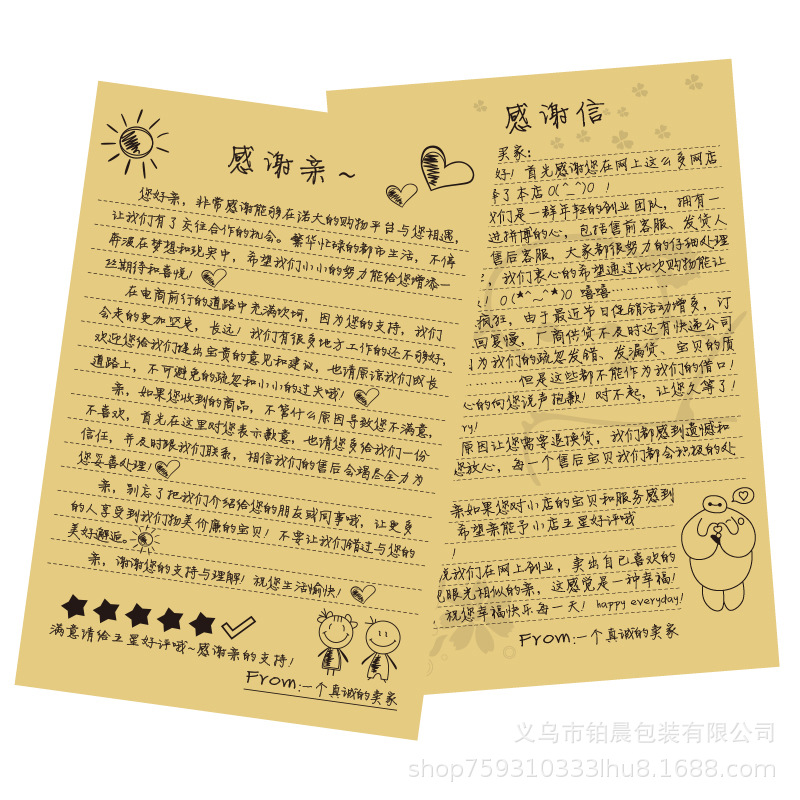 感谢亲~
您好亲，非常感谢能够在诺大的购物平台与您相遇，
让我们有了交往合作的机会。繁华忙碌的都市生活，不停
奔波在梦想和现实中，希望我们小小的努力能给您增添一
丝期待和喜悦！
在电商前行的道路中充满坎坷，因为您的支持，我们
会走的更加坚定，长远！我们有很多地方工作的还不够好，
欢迎您给我们提出宝贵的意见和建议，也请原谅我们成长
道路上，不可避免的疏忽和小小的过失哦！
亲，如果您收到的商品，不管什么原因导致您不满意，
不喜欢，首先在这里对您表示歉意，也请您多给我们一份
信任，并及时跟我们联系，相信我们的售后会竭尽全力为
您妥善处理！
亲，别忘了把我们介绍给您的朋友或同事哦，让更多
的人享受到我们物美价廉的宝贝！不要让我们错过与您的
美好邂逅。
亲，谢谢您的支持与理解！祝您生活愉快！
满意请给五星好评哦~感谢亲的支持！
From:一个真诚的卖家
感谢信
买家：
好！首先感谢您在网上这么多网店
择了本店O(^_^)O ！
我们是一群年轻的创业团队，拥有一
进拼搏的心，包括售前客服、发货人
售后客服，大家都很努力的仔细处理
，我们衷心的希望通过此次购物能让
！O(★^～^★)O 嘻嘻
疯狂，由于最近节日促销活动增多，订
回复慢，厂商供货不及时还有快递公司
为我们的疏忽发错、发漏货、宝贝的质
………但是这些都不能作为我们的借口！
心的向您说声抱歉！对不起，让您久等了！
ry!
原因让您需要退换货，我们都感到遗憾和
您放心，每一个售后宝贝我们都会积极的处
亲如果您对小店的宝贝和服务感到
希望亲能予小店五星好评哦
！
说我们在网上创业，卖出自己喜欢的
眼光相似的亲，这感觉是一种幸福！
祝您幸福快乐每一天！happy everyday!
From:一个真诚的卖家
义乌市铂晨包装有限公司
shop759310333lhu8.1688.com